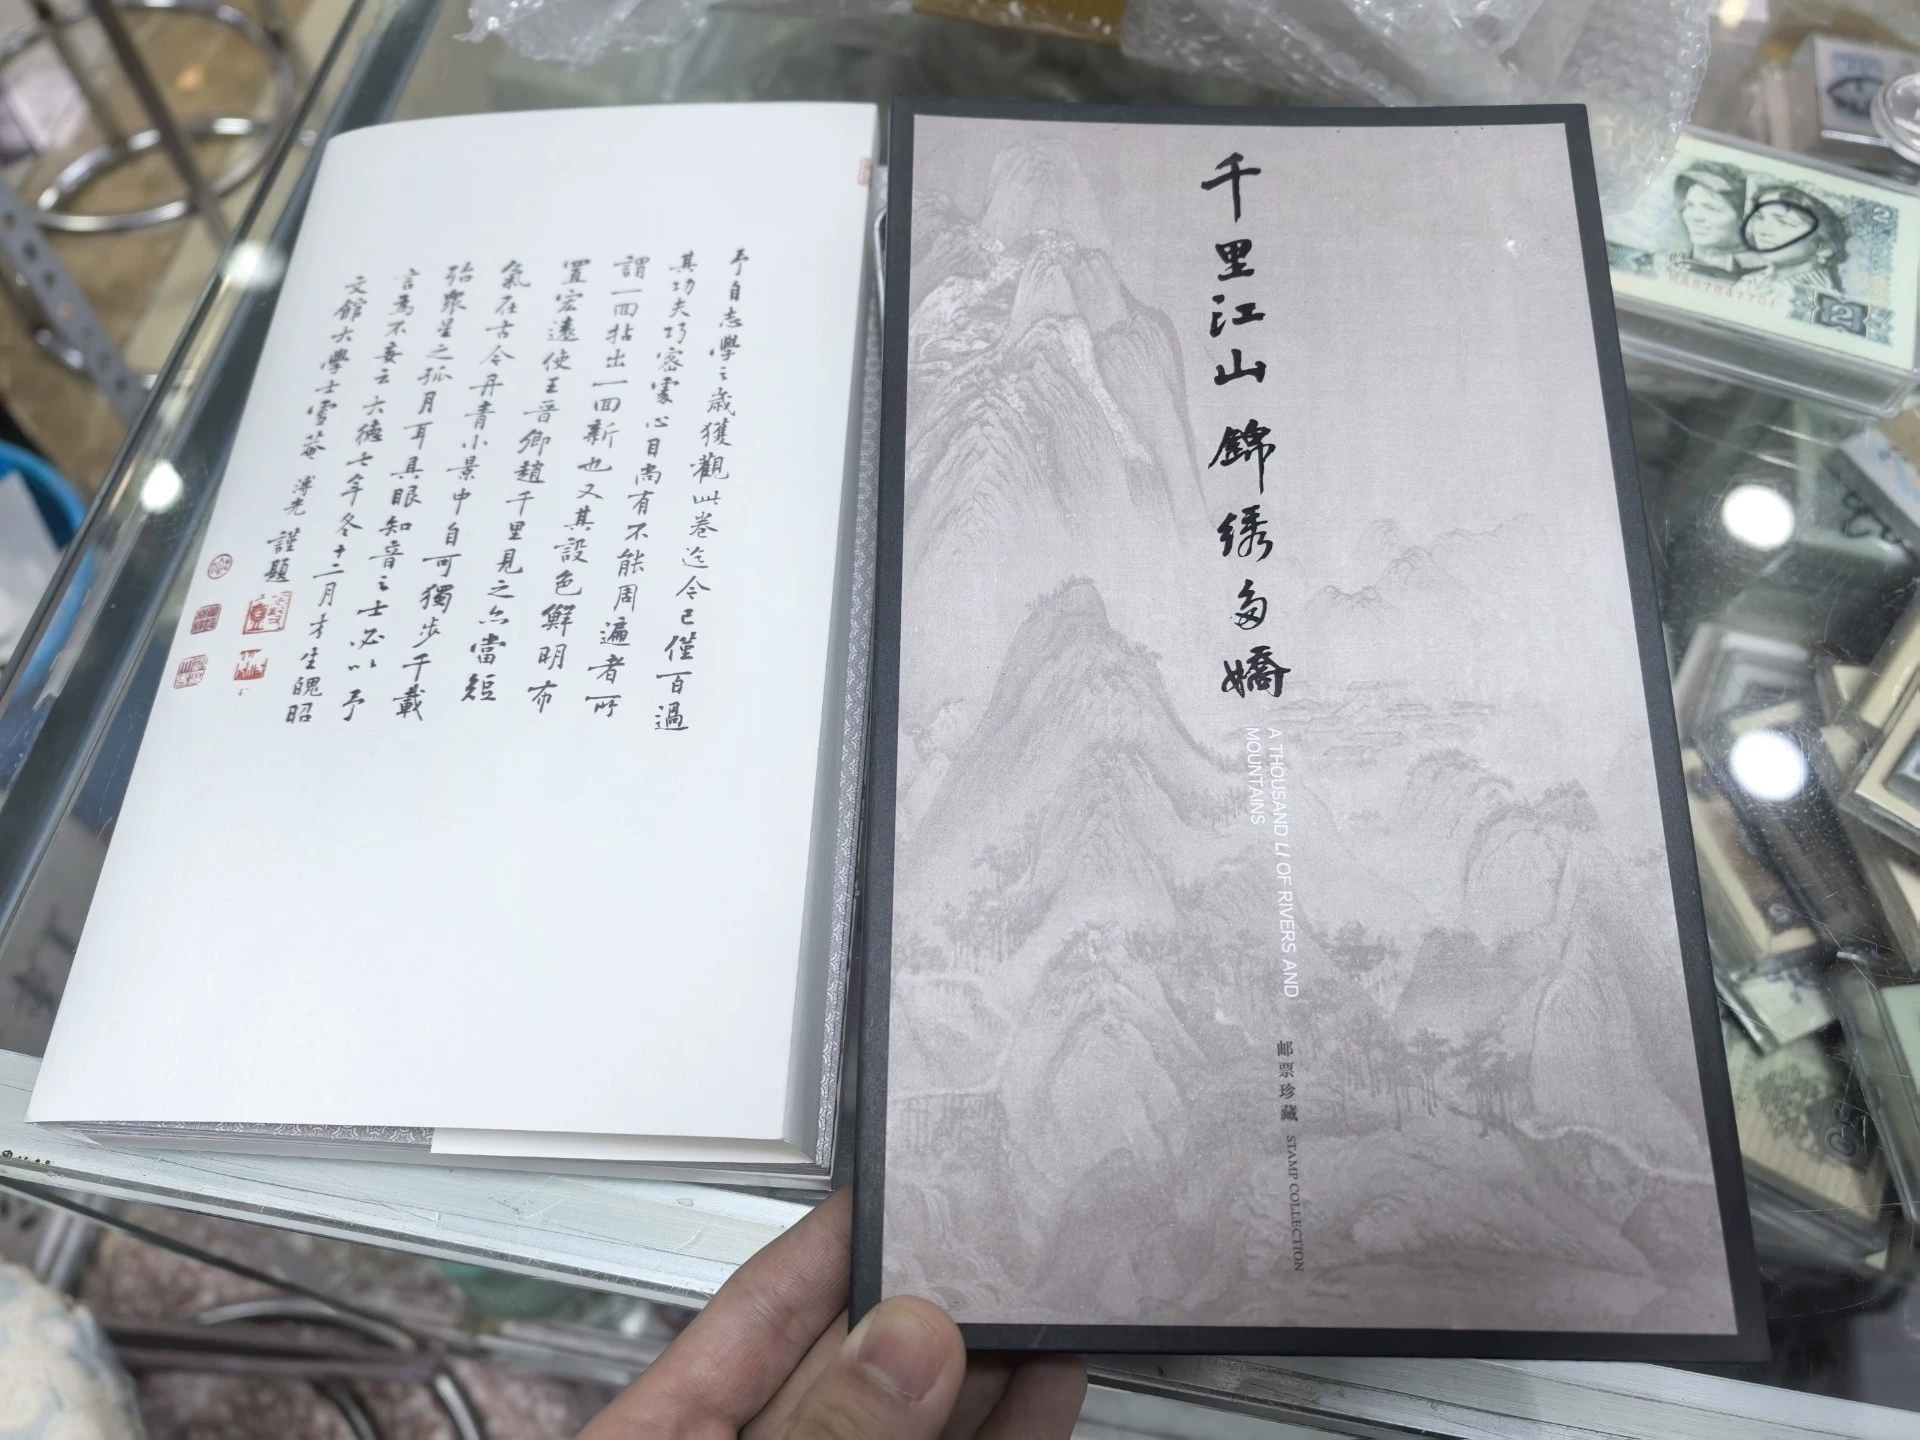 予自志學之歲獲觀此卷迄今已僅百過
其功夫巧密處心目尚有不能周遍者所
謂一回拈出一回新也又其設色鮮明布
置宏遠使王晋卿趙千里見之亦當短
氣在古今丹青小景中自可獨步千載
殆衆星之孤月耳具眼知音之士必以予
言為不妄云大德七年冬十二月才生魄昭
文館大學士雪菴溥光謹題
千里江山 錦绣多嬌
A THOUSAND LI OF RIVERS AND
MOUNTAINS
邮票珍藏 STAMP COLLECTION
2
2